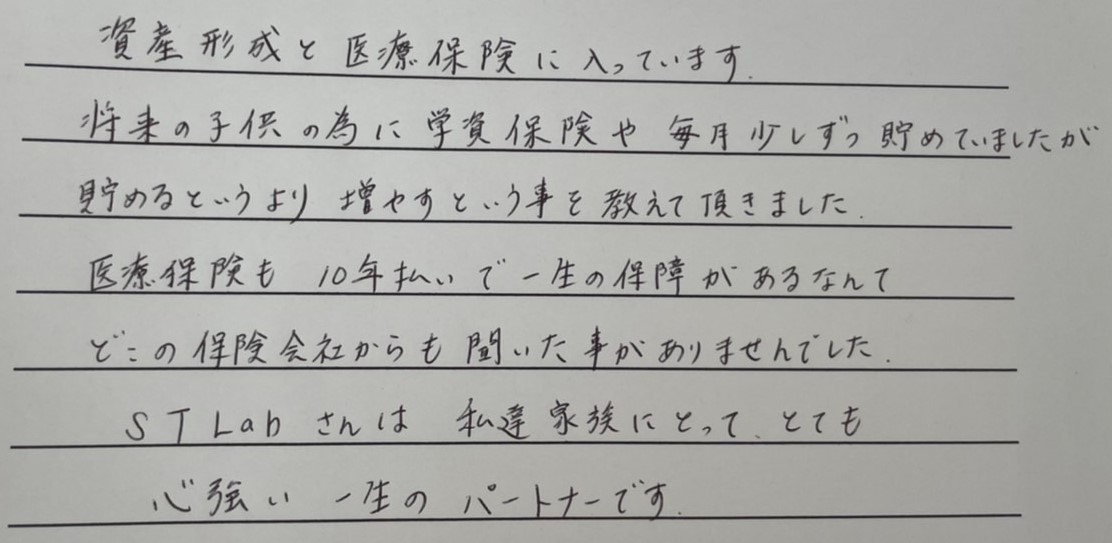 資産形成と医療保険に入っています.
将来の子供の為に学資保険や毎月少しずつ貯めていましたが
貯めるというより増やすという事を教えて頂きました.
医療保険も10年払いで一生の保障があるなんて
どこの保険会社からも聞いた事がありませんでした.
STLabさんは私達家族にとって、とても
心強い一生のパートナーです.